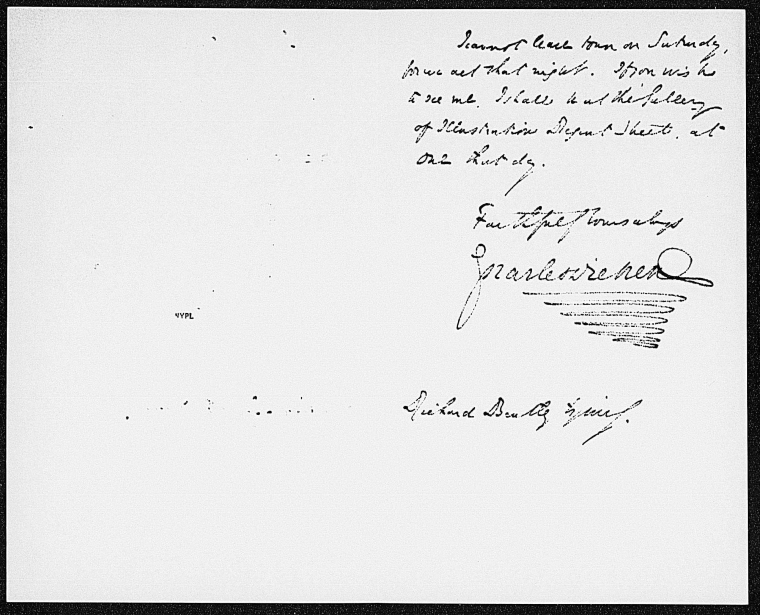 I cannot leave town on Saturday,
for we act that night. If you wish
to see me, I shall be at the Gallery
of Illustration Regent Street, at
one that day.
Faithfully Yours always
Charles Dickens
NYPL
Richard Bentley Esquire.